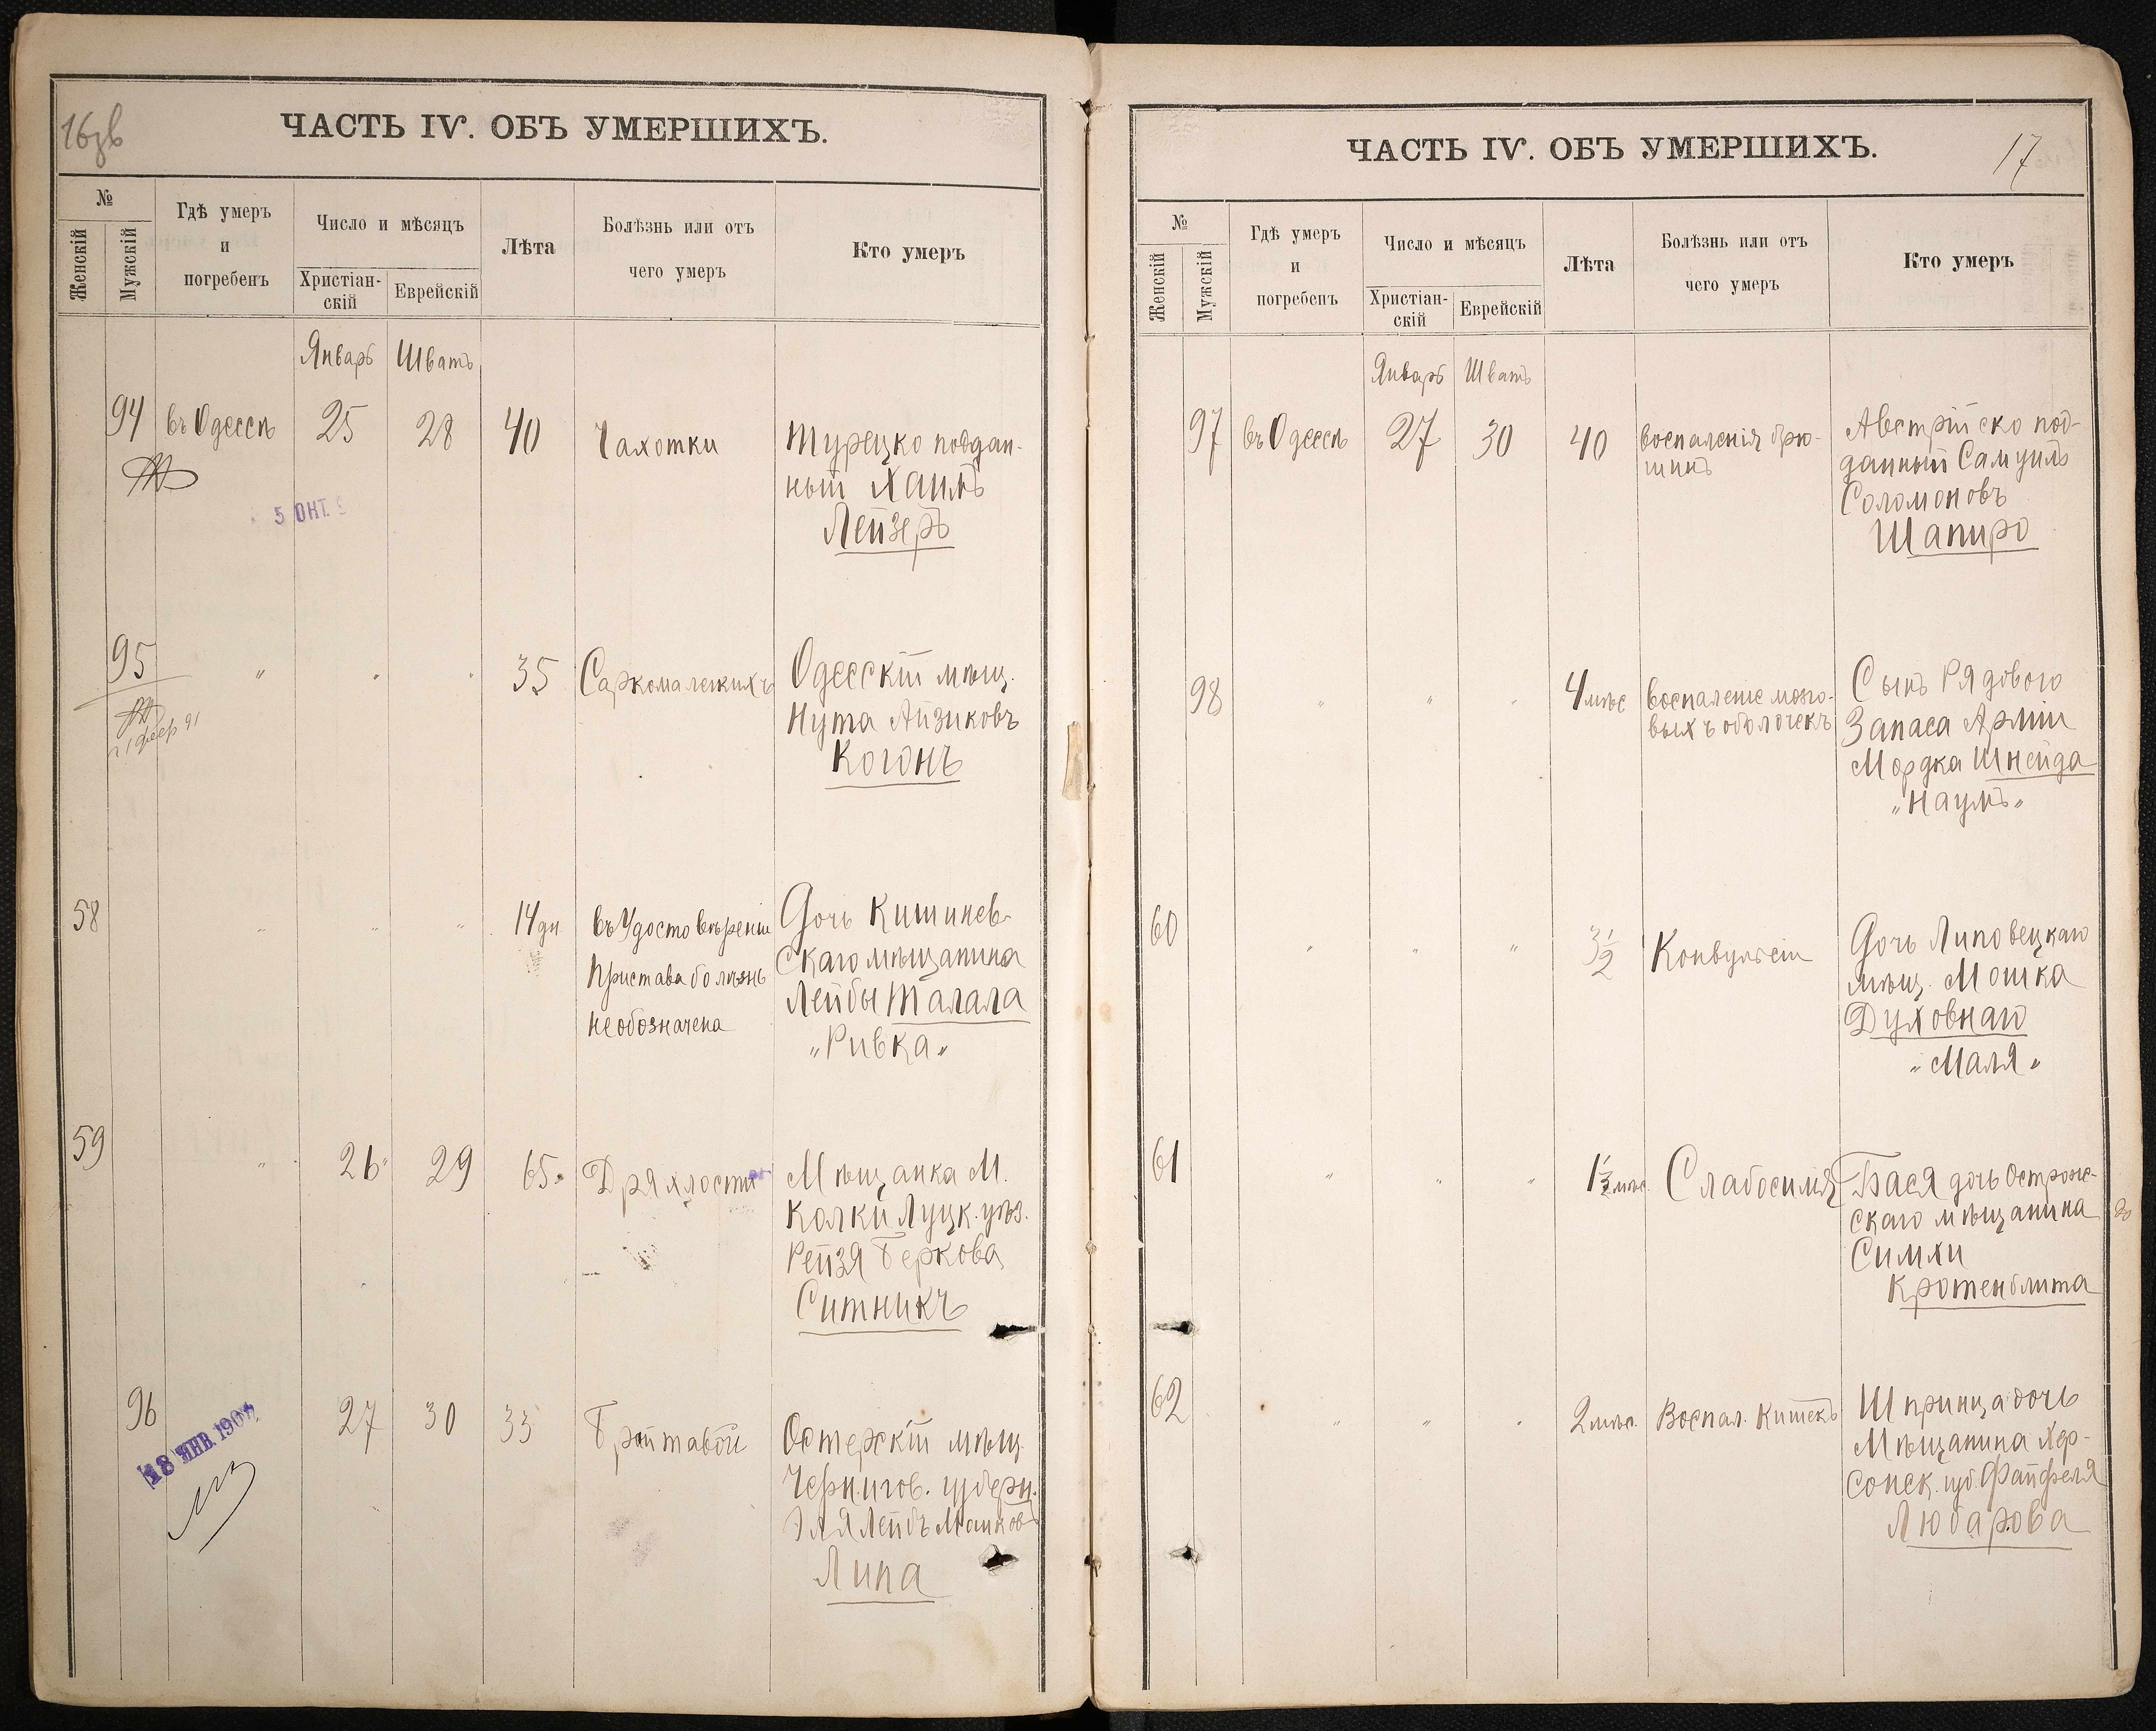 16
ЧАСТЬ IV. ОБЪ УМЕРШИХЪ.
№
Женскій
Мужскій
Гдѣ умеръ
и
погребенъ
Число и мѣсяцъ
Христіан-
скій
Еврейскій
Лѣта
Болѣзнь или отъ
чего умеръ
Кто умеръ
Январь Шватъ
94 въ Одессѣ 25 28 40 Чахотки Турецко поддан-
ный Хаимъ
Лейзеръ
5 ОКТ.
95 " " " 35 Саркома легкихъ Одесскій мѣщ.
Нута Айзиковъ
Когонъ
1 февр 91
58 " " " 14 дн. въ Удостовѣреніи Дочь Кишинев-
Пристава болѣзнь скаго мѣщанина
не обозначена Лейбы Талала
"Ривка"
59 " 26 29 65 Дряхлости Мѣщанка М.
Колки Луцк. уѣз.
Рейзя Беркова
Ситникъ
96 27 30 33 Остерскій мѣщ.
Чернигов. губерн.
Эля Лейбъ
Липа
18 ЯНВ. 190
17
ЧАСТЬ IV. ОБЪ УМЕРШИХЪ.
№
Женскій
Мужскій
Гдѣ умеръ
и
погребенъ
Число и мѣсяцъ
Христіан-
скій
Еврейскій
Лѣта
Болѣзнь или отъ
чего умеръ
Кто умеръ
Январь Шватъ
97 въ Одессѣ 27 30 40 воспаленія брю- Австрійско под-
шинъ данный Самуилъ
Соломоновъ
Шапиро
98 " " " 4 мѣс воспаленіе мозго- Сынъ Рядового
выхъ оболочекъ Запаса Арміи
Мордка Шнейда
"Наумъ"
60 " " " 3 1/2 Конвульсіи Дочь Липовецкаго
мѣщ. Мошка
Духовнаго
"Маля"
61 " " " 1 1/2 мѣс. Слабосилія Бася дочь Острож-
скаго мѣщанина
Симхи
Кротенблита
62 " " " 2 мѣс. Воспал. Кишекъ Шпринца дочь
Мѣщанина Хер-
сонск. губ. Файфеля
Любарова